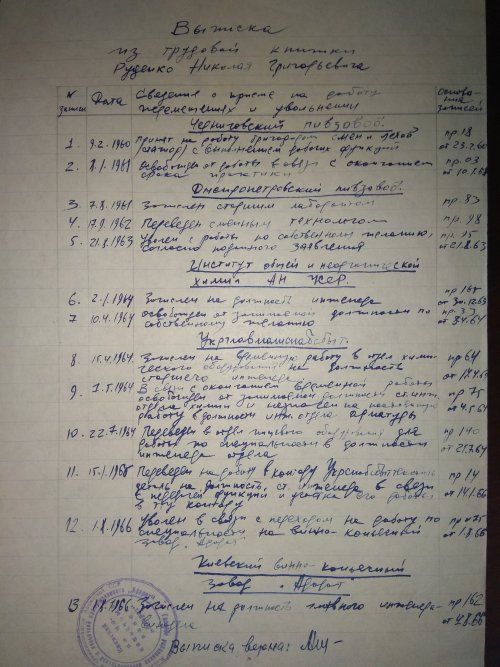 Выписка
из трудовой книжки
Руденко Николая Григорьевича
N записи Дата Сведения о приеме на работу перемещениях и увольнении Основание записей
Черниговский пивзавод.
1. 9.2.1960 Принят на работу бригадиром смен и цехов
с выполнением рабочих функций пр 18
2. 8.1.1961 Освобожден от работы в связи с окончанием
срока практики пр. 03
Днепропетровский пивзавод.
3. 7.8.1961 Зачислен старшим лаборантом пр. 83
4. 17.9.1962 Переведен сменным технологом пр. 98
5. 21.8.1963 Уволен с работы по собственному желанию,
согласно поданного заявления от 21.8.63
Институт общей и неорганической
химии АН УССР.
6. 2.1.1964 Зачислен на должность инженера пр 168
от 30.12.63
7 10.4.1964 Освобожден от занимаемой должности по
собственному желанию
Укрглавмашснабсбыт.
8 15.4.1964. Зачислен на временную работу в отдел хими-
ческого оборудования на должность
старшего инженера пр 64
9 1.5.1964 В связи с окончанием временной работы
освобожден от занимаемой должности ст. инж.
отдела химии и назначен на постоянную
работу в должности инж. отдела арматуры пр 75
от 4.5.64
10. 22.7.1964 Переведен в отдел пищевого оборудования для
работы по специальности в должности
инженера отдела пр 140
от 21.7.64
11. 15.1.1966 Переведен на работу в контору
на должность ст. инженера в связи
с передачей функций и участка его работы
в эту контору пр 14
от 14.1.66
12. 1.8.1966 Уволен в связи с переходом на работу по
специальности на винно-коньячный
завод
от 1.8.66
Киевский винно-коньячный
завод
13. 1.8.1966 Зачислен на должность главного инженера
завода пр 162
от 4.8.66
Выписка верна: